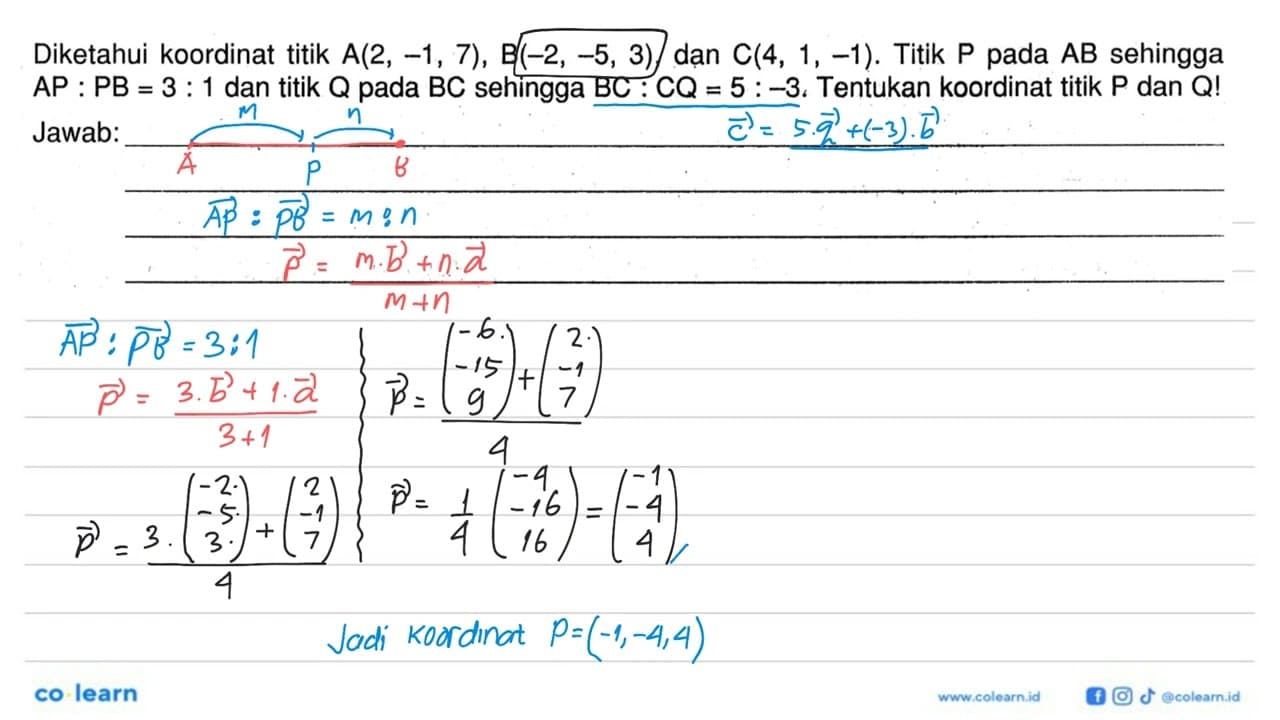 Diketahui koordinat titik A(2, –1, 7), B(–2, –5, 3), dan C(4, 1, –1). Titik P pada AB sehingga
AP : PB = 3 : 1 dan titik Q pada BC sehingga BC : CQ = 5 : –3. Tentukan koordinat titik P dan Q!
Jawab:
m n
A P B
c⃗ = 5.q⃗ + (-3).b⃗
AP⃗ : PB⃗ = m : n
p⃗ = (m.b⃗ + n.a⃗)/(m+n)
AP⃗ : PB⃗ = 3 : 1
p⃗ = (3.b⃗ + 1.a⃗)/(3+1)
p⃗ = (3.(-2 -5 3) + (2 -1 7))/4
p⃗ = ((-6 -15 9) + (2 -1 7))/4
p⃗ = 1/4 (-4 -16 16) = (-1 -4 4)
Jadi koordinat P=(-1,-4,4)
co learn
www.colearn.id
@colearn.id